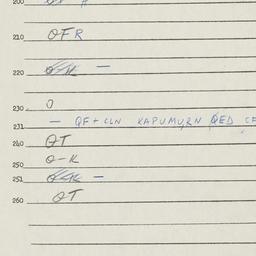 200
210 OFR
220 —
230 O
231 — QF + CLN KAPUMURN QED CF
240 OT
250 O-K
251 —
260 OT